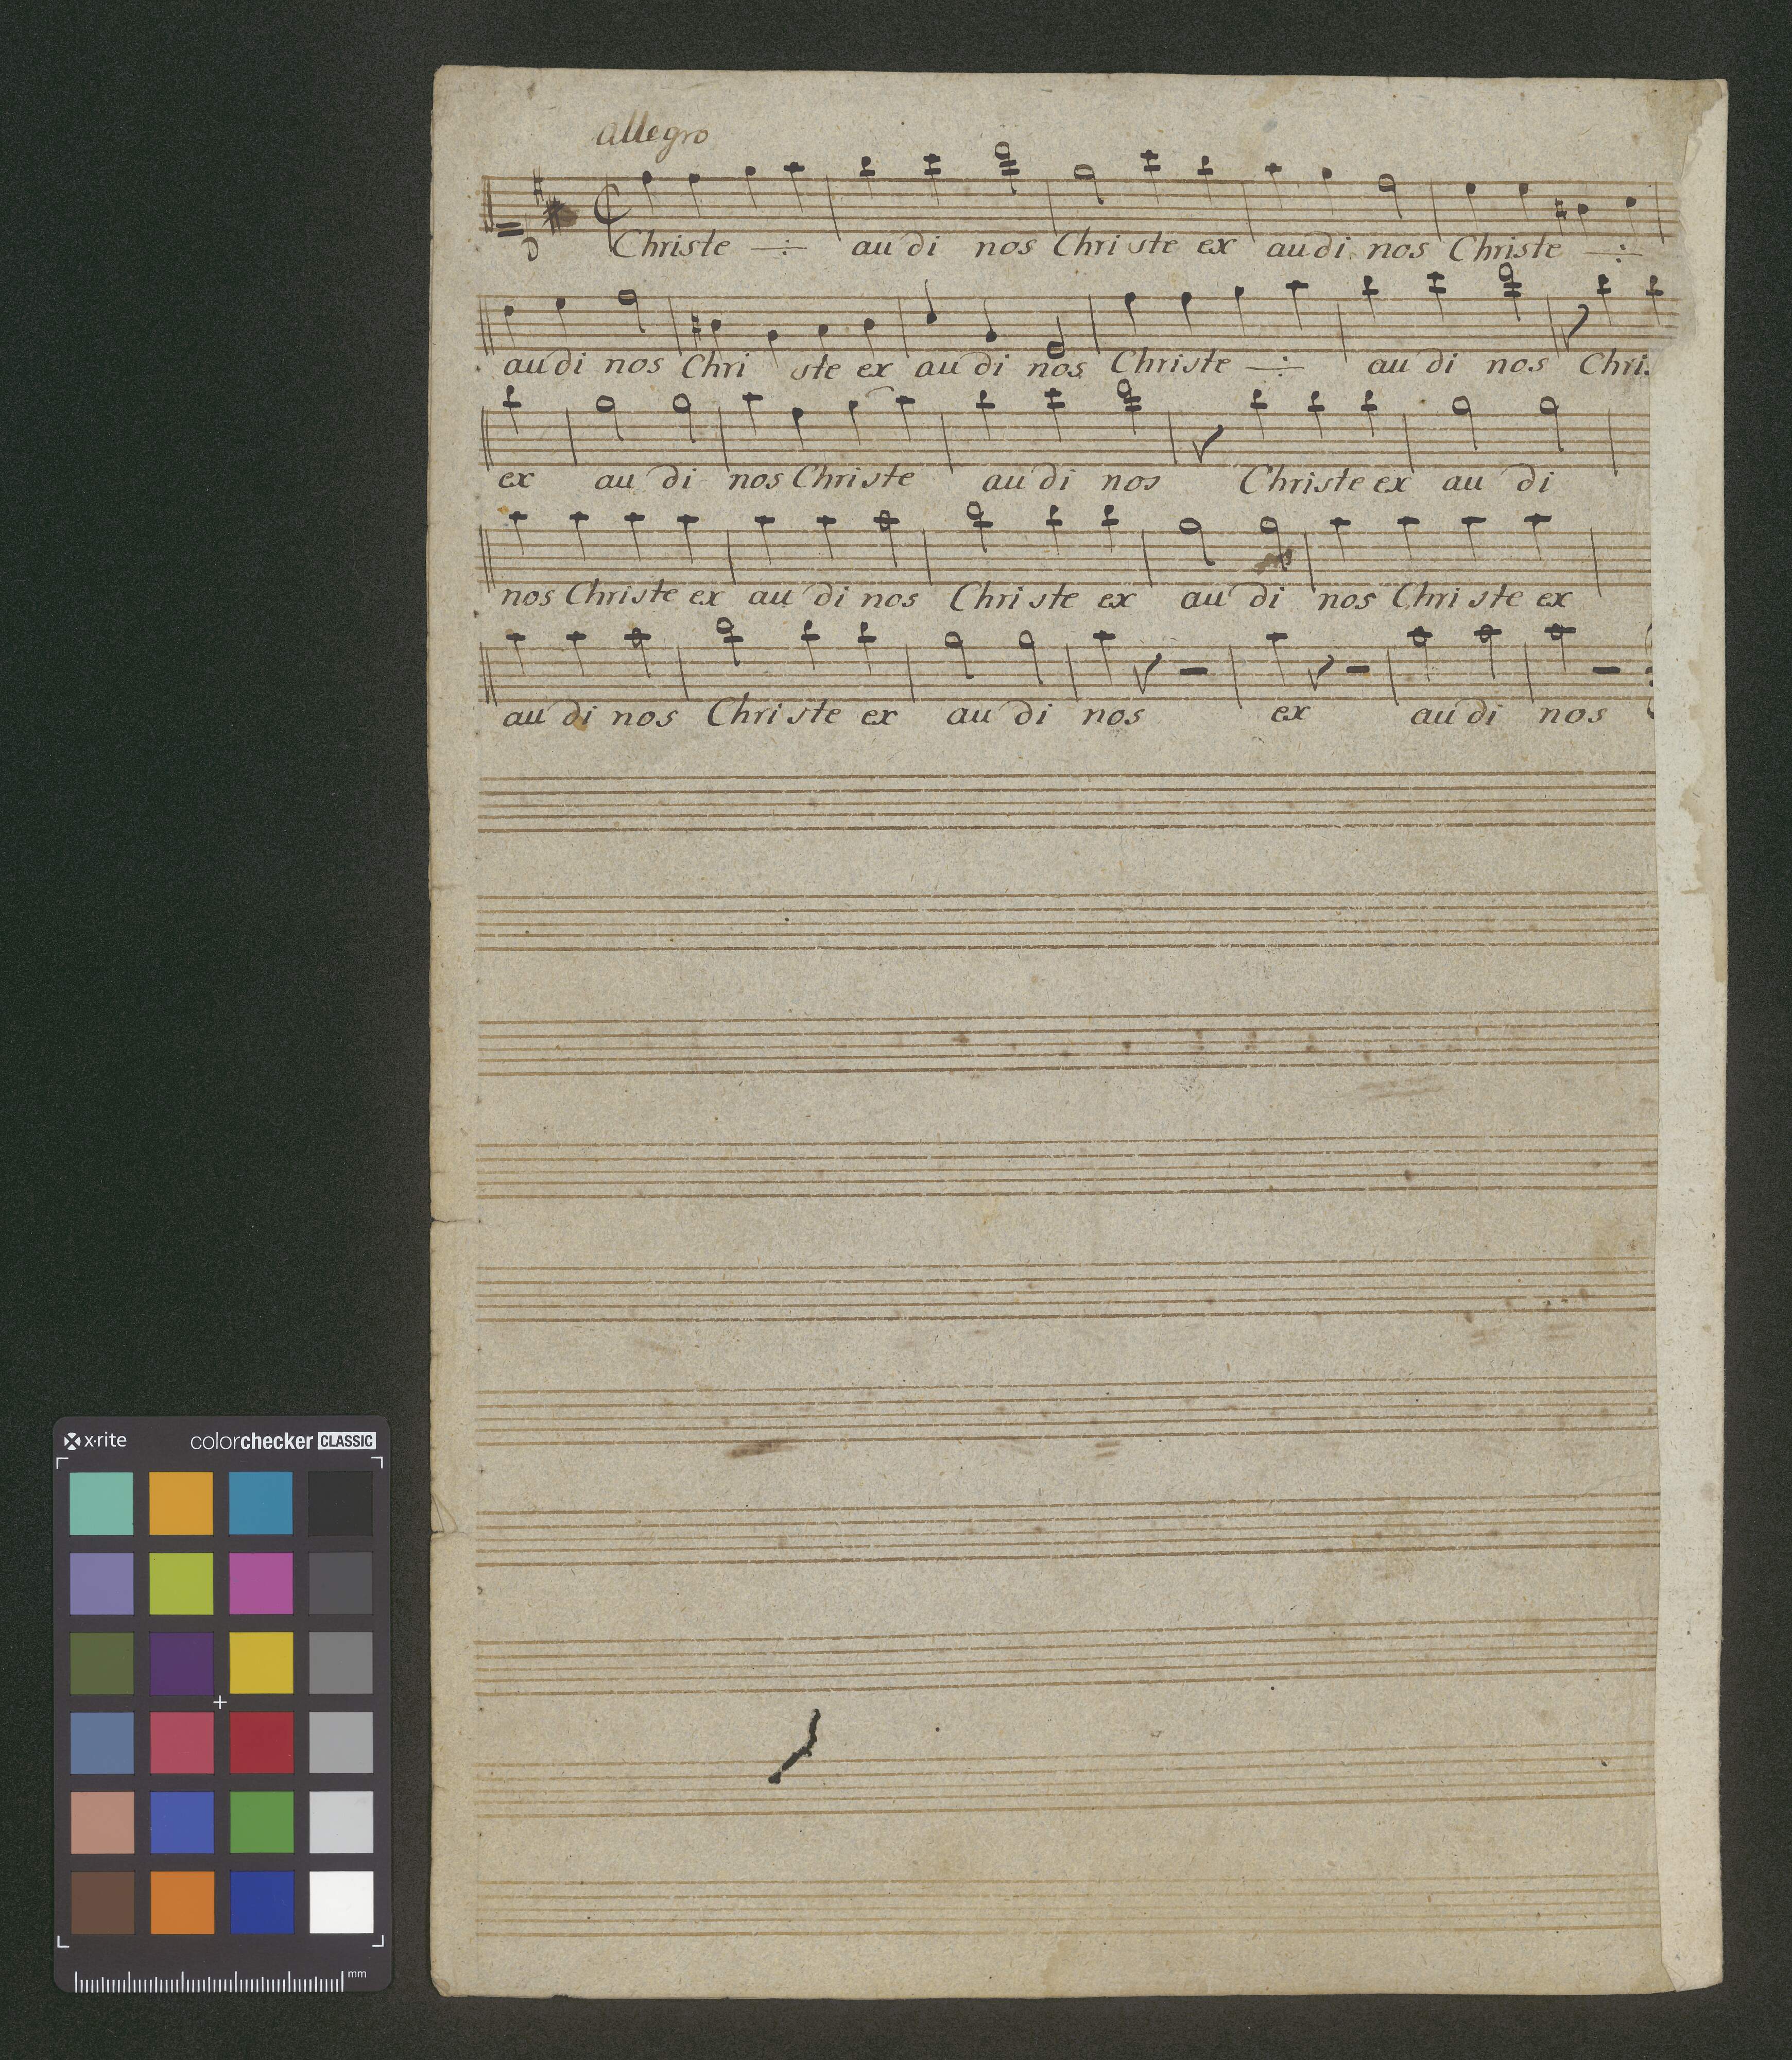 allegro
Christe au di nos Chri ste ex au di nos Christe
au di nos Chri ste ex au di nos Christe au di nos Chris
ex au di nos Christe au di nos Christe ex au di
nos Christe ex au di nos Christe ex au di nos Christe ex
au di nos Christe ex au di nos ex au di nos
x·rite colorchecker CLASSIC
mm